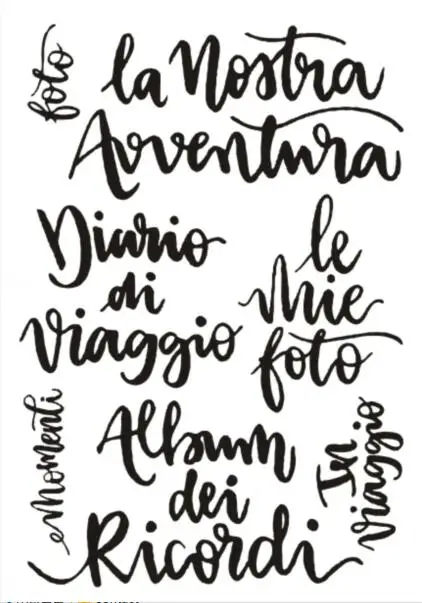 foto
la Nostra
Avventura
Diario
di
Viaggio
le
Mie
foto
Momenti
Album
dei
Ricordi
In
viaggio